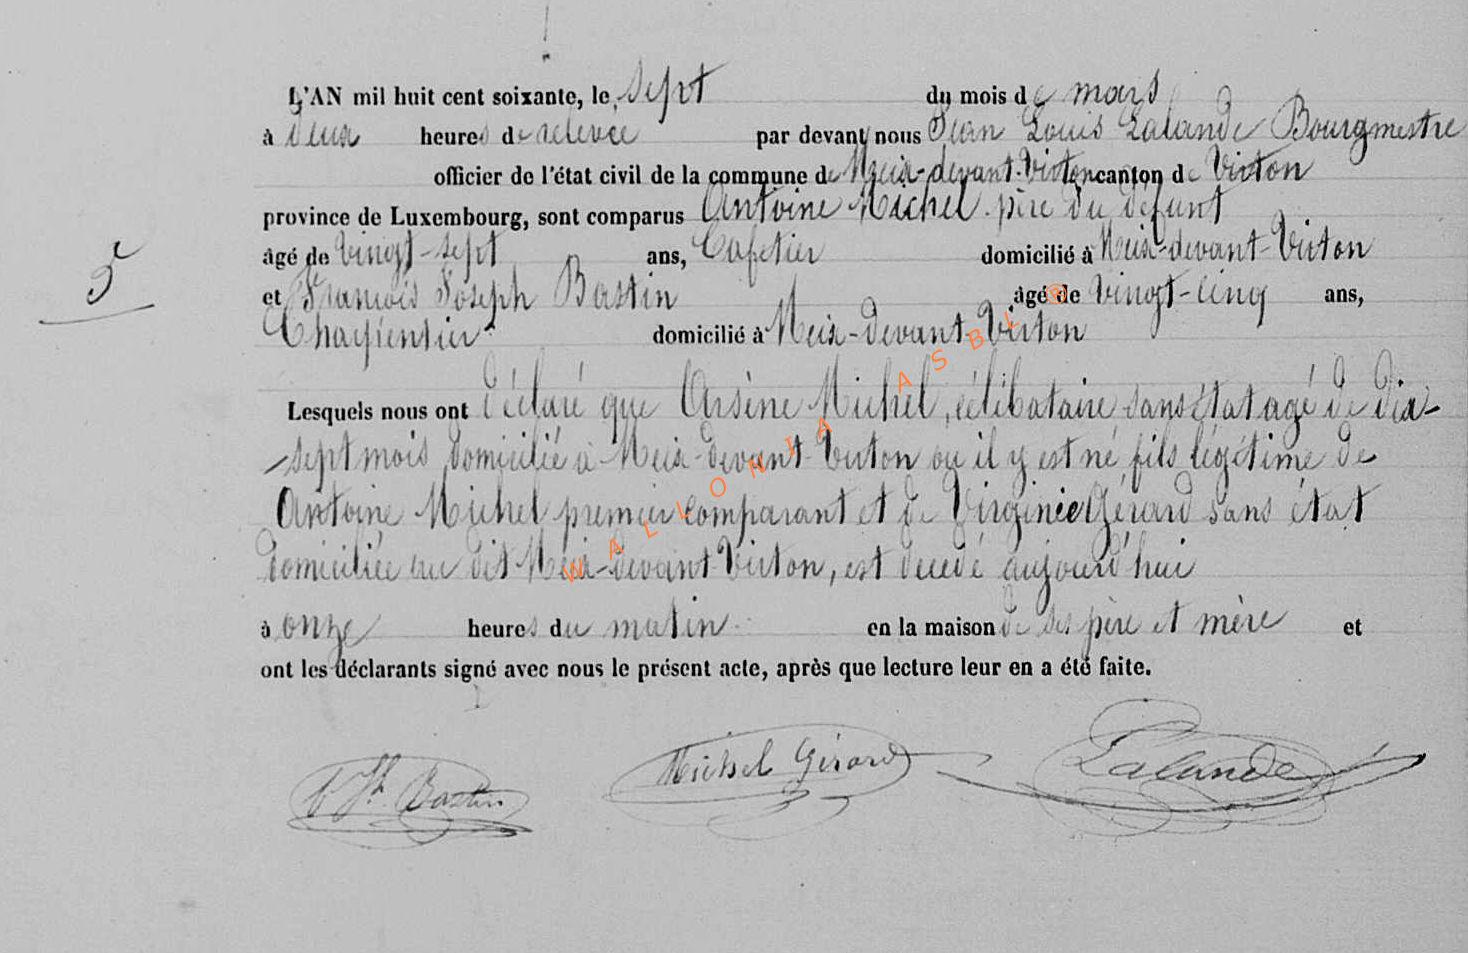 L'AN mil huit cent soixante, le sept du mois de mars
à deux heures de relevée par devant nous Jean Louis Lalande Bourgmestre
officier de l'état civil de la commune de Meix-devant-Virton canton de Virton
province de Luxembourg, sont comparus Antoine Michel père du défunt
âgé de vingt-sept ans, Cafetier domicilié à Meix-devant-Virton
5e
et François Joseph Bastin âgé de vingt-cinq ans,
Charpentier domicilié à Meix-devant-Virton
Lesquels nous ont déclaré que Arsène Michel, célibataire sans état agé de dix-
-sept mois domicilié à Meix-devant-Virton ou il y est né fils légitime de
Antoine Michel premier comparant et de Virginie Gérard sans état
domiciliée au dit Meix-devant-Virton, est decedé aujourd'hui
à onze heures du matin en la maison de ses père et mère et
ont les déclarants signé avec nous le présent acte, après que lecture leur en a été faite.
Bastin Michel Gérard Lalande
WALLONIA ASBL ®